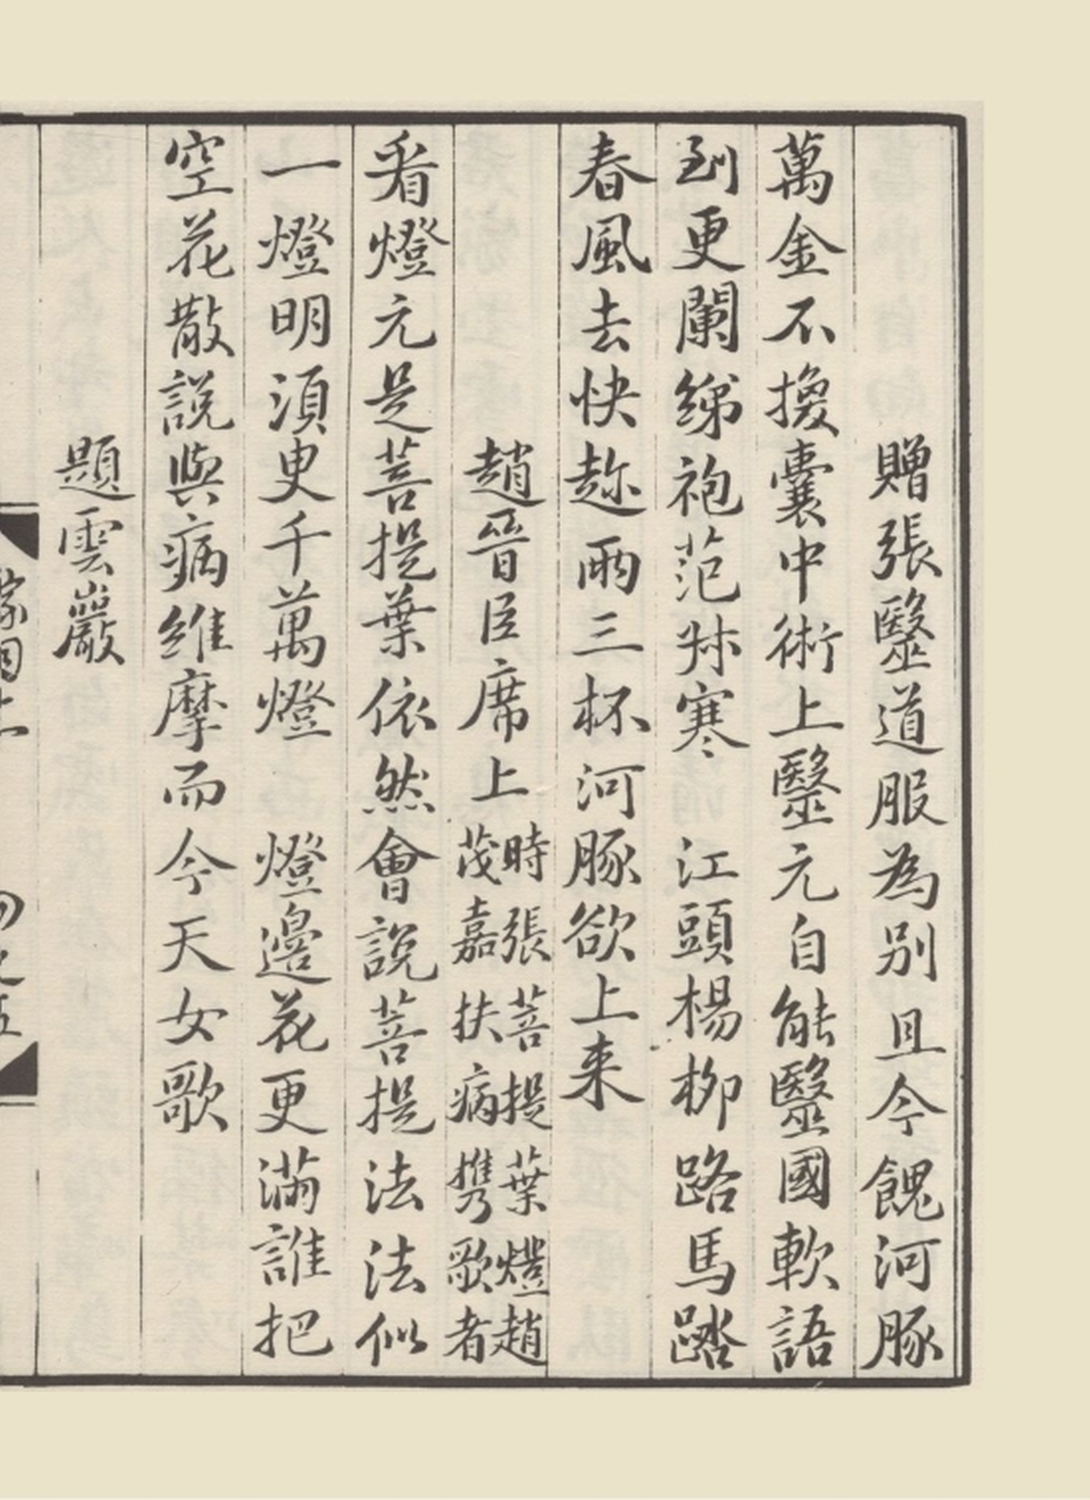 贈張醫道服為别且今餽河豚
萬金不換囊中術上醫元自能醫國軟語
到更闌綈袍范叔寒　江頭楊柳路馬踏
春風去快趂兩三杯河豚欲上来
趙晉臣席上時張菩提葉燈趙茂嘉扶病携歌者
看燈元是菩提葉依然會說菩提法法似
一燈明須更千萬燈　燈邊花更滿誰把
空花散說與病維摩而今天女歌
題雲巖